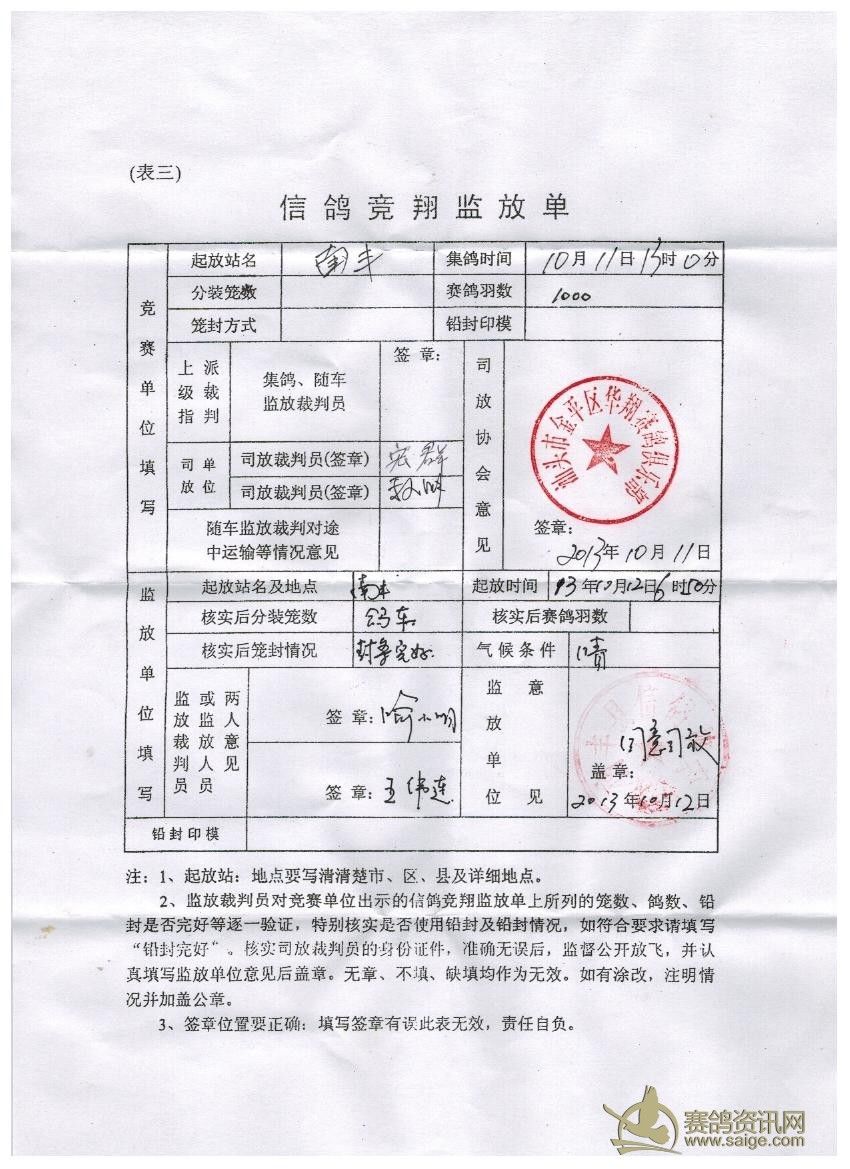 (表三)
信鸽竞翔监放单
竞赛单位填写
起放站名 南丰 集鸽时间 10月11日13时0分
分装笼数 赛鸽羽数 1000
笼封方式 铅封印模
上级指派裁判 集鸽、随车监放裁判员 签章:
司放单位 司放裁判员(签章)
司放裁判员(签章)
随车监放裁判对途中运输等情况意见
司放协会意见
汕头市金平区华翔赛鸽俱乐部
签章:
2013年10月11日
监放单位填写
起放站名及地点 南丰 起放时间 13年10月12日6时50分
核实后分装笼数 鸽车 核实后赛鸽羽数
核实后笼封情况 封条完好 气候条件 晴
监放裁判员或监放人员两人意见
签章: 喻小明
签章: 王伟连
监放单位意见
同意司放
盖章:
2013年10月12日
铅封印模
注: 1、起放站: 地点要写清清楚市、区、县及详细地点。
2、监放裁判员对竞赛单位出示的信鸽竞翔监放单上所列的笼数、鸽数、铅
封是否完好等逐一验证，特别核实是否使用铅封及铅封情况，如符合要求请填写
“铅封完好”。核实司放裁判员的身份证件，准确无误后，监督公开放飞，并认
真填写监放单位意见后盖章。无章、不填、缺填均作为无效。如有涂改，注明情
况并加盖公章。
3、签章位置要正确: 填写签章有误此表无效，责任自负。
赛鸽资讯网
www.saige.com